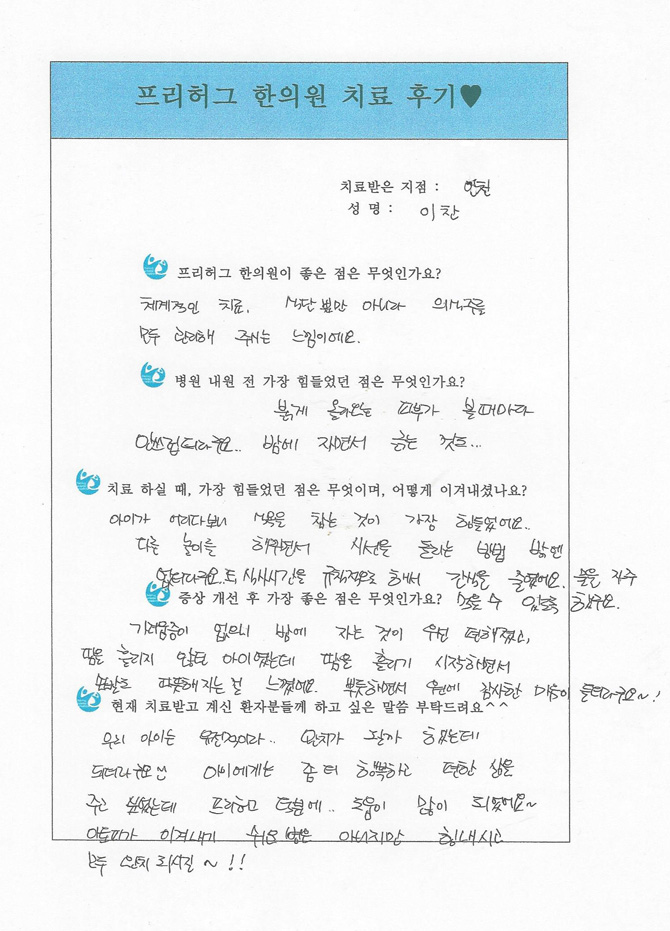 프리허그 한의원 치료 후기♥
치료받은 지점 : 인천
성 명 : 이찬
프리허그 한의원이 좋은 점은 무엇인가요?
체계적인 치료. 식단뿐만 아니라 의식주를
모두 관리해 주시는 느낌이에요.
병원 내원 전 가장 힘들었던 점은 무엇인가요?
붉게 올라오는 피부가 볼때마다
안쓰럽더라구요.. 밤에 자면서 긁는 것도...
치료 하실 때, 가장 힘들었던 점은 무엇이며, 어떻게 이겨내셨나요?
아이가 어리다보니 식욕을 참는 것이 가장 힘들었어요..
다른 놀이를 해주면서 시선을 돌리는 방법 밖엔
없더라구요.. 또 식사시간을 규칙적으로 해서 간식을 줄였어요. 물을 자주
증상 개선 후 가장 좋은 점은 무엇인가요? 먹을 수 있도록 했구요.
가려움증이 없으니 밤에 자는 것이 우선 편해졌고,
땀을 흘리지 않던 아이였는데 땀을 흘리기 시작하면서
손발도 따뜻해지는 걸 느꼈어요. 뿌듯하면서 우선에 감사한 마음이 들더라구요~!
현재 치료받고 계신 환자분들께 하고 싶은 말씀 부탁드려요^^
우리 아이는 유전적이라.. 완치가 될까 했는데
되더라구요^^ 아이에게는 좀 더 행복하고 편한 삶을
주고 싶었는데 프리허그 덕분에.. 도움이 많이 되었어요~
아토피가 이겨내기 쉬운 병은 아니지만 힘내시고
모두 완치 되시길 ~ !!